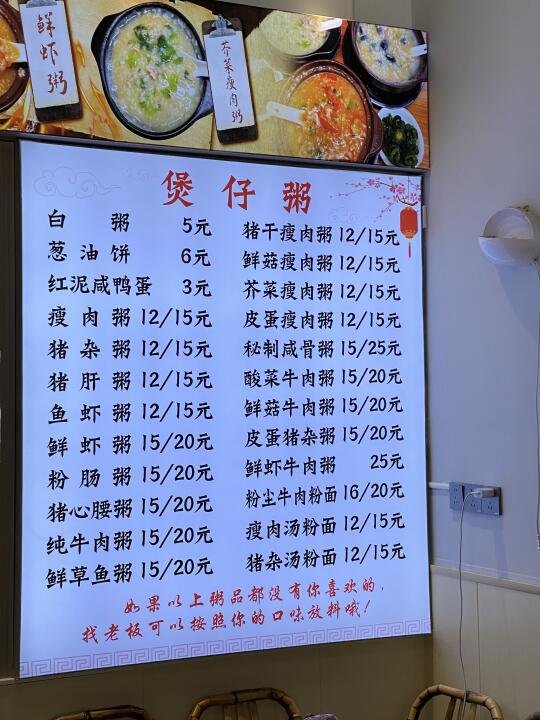 鲜虾粥
芥菜瘦肉粥
煲仔粥
白粥 5元
葱油饼 6元
红泥咸鸭蛋 3元
瘦肉粥 12/15元
猪杂粥 12/15元
猪肝粥 12/15元
鱼虾粥 12/15元
鲜虾粥 15/20元
粉肠粥 15/20元
猪心腰粥 15/20元
纯牛肉粥 15/20元
鲜草鱼粥 15/20元
猪干瘦肉粥 12/15元
鲜菇瘦肉粥 12/15元
芥菜瘦肉粥 12/15元
皮蛋瘦肉粥 12/15元
秘制咸骨粥 15/25元
酸菜牛肉粥 15/20元
鲜菇牛肉粥 15/20元
皮蛋猪杂粥 15/20元
鲜虾牛肉粥 25元
粉尘牛肉粉面 16/20元
瘦肉汤粉面 12/15元
猪杂汤粉面 12/15元
如果以上粥品都没有你喜欢的,
找老板可以按照你的口味放料哦!